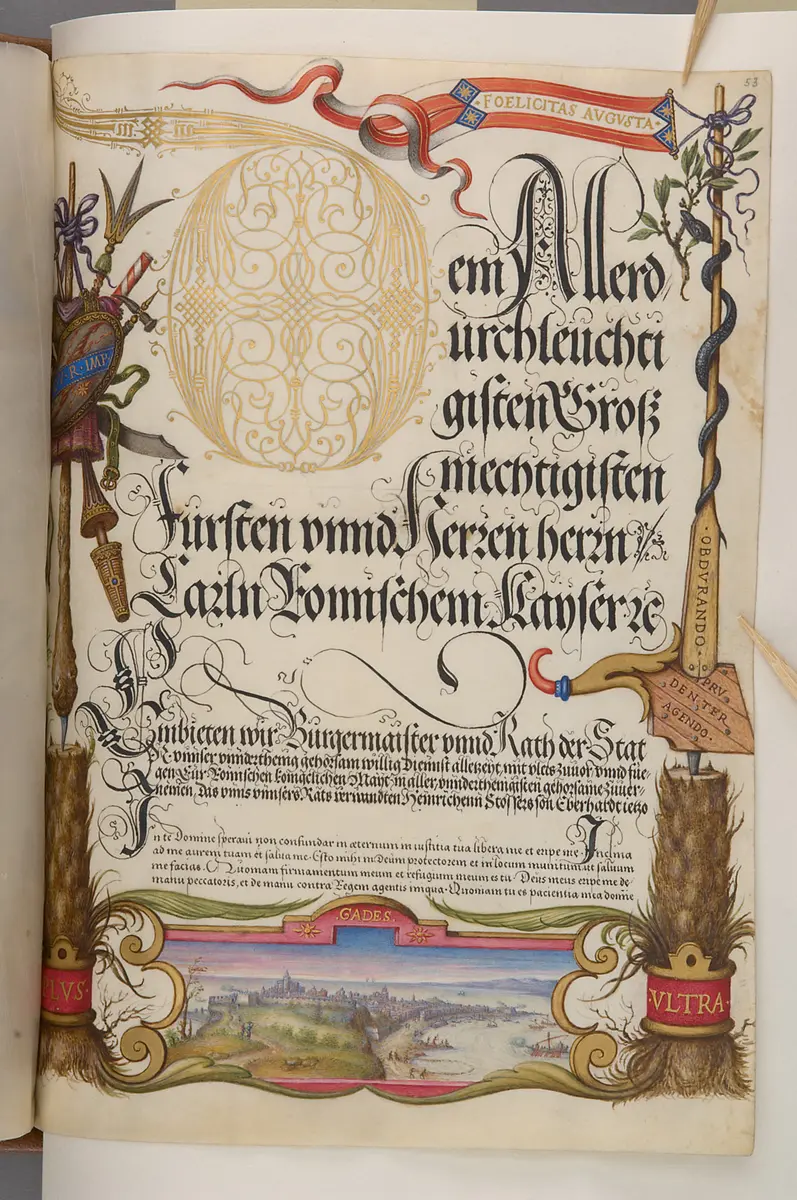 53
FOELICITAS AVGVSTA
Dem Allerd
urchleuchti
gisten Groß
mechtigisten
Fürsten vnnd Herren herrn
Carln Romischem Kayser ꝛc
R·IMP
OBDVRANDO
PRV
DENTER
AGENDO·
Embieten wir Burgermaister vnnd Rath der Stat
N· vnnser vnnderthenig gehorsam willig Diennst allezeyt, mit vleis zuuor vnnd fue¬
gen Eur Romischen konigelichen Mayt, in aller vnnderthenigsten gehorsame zuuer¬
nemen, das vnns vnnsers Rats verwandten Heinrichenn Stossers son Eberhardt ietzo
In te Domine speraui non confundar in aeternum in iustitia tua libera me et eripe me· Inclina
ad me aurem tuam et salua me· Esto mihi in Deum protectorem et in locum munitum ut saluum
me facias· Quoniam firmamentum meum et refugium meum es tu· Deus meus eripe me de
manu peccatoris, et de manu contra legem agentis iniqua· Quoniam tu es pacientia mea domine
·GADES·
PLVS·
·VLTRA·